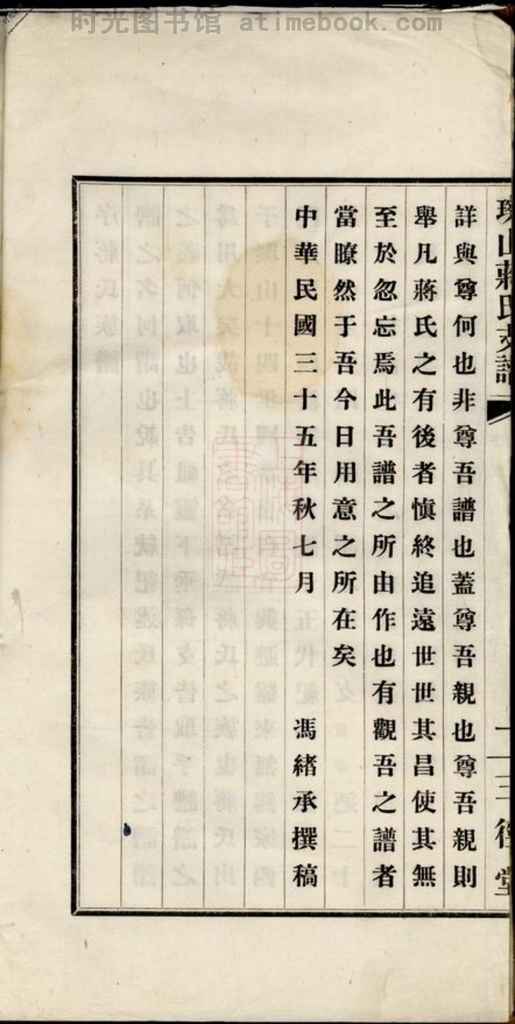 时光图书馆 atimebook.com
山蔣氏支譜
一
三徑堂
詳與尊何也非尊吾譜也蓋尊吾親也尊吾親則
舉凡蔣氏之有後者慎終追遠世世其昌使其無
至於忽忘焉此吾譜之所由作也有觀吾之譜者
當瞭然于吾今日用意之所在矣
中華民國三十五年秋七月 馮緒承撰稿